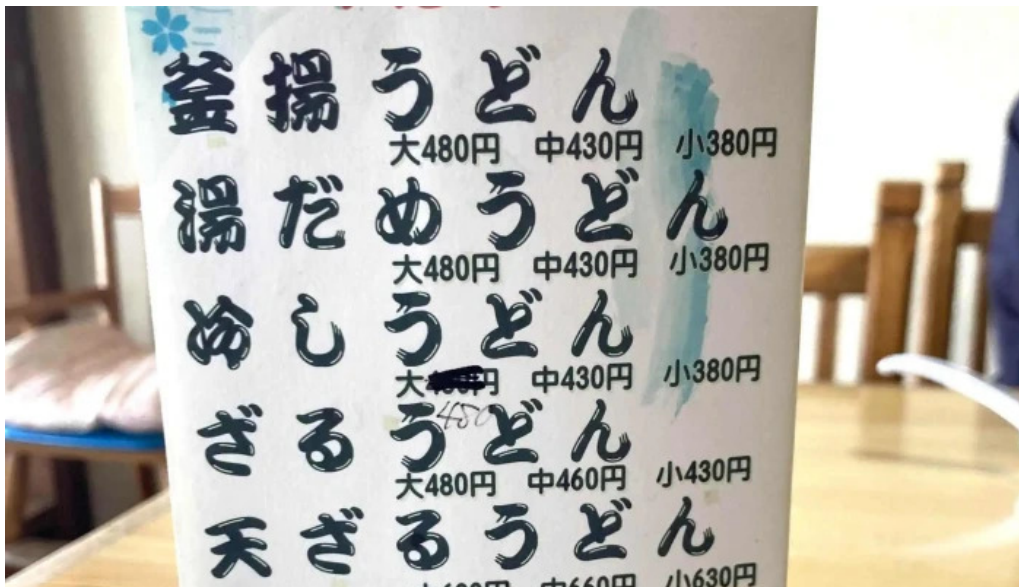 釜揚うどん
大480円 中430円 小380円
湯だめうどん
大480円 中430円 小380円
冷しうどん
大 円 中430円 小380円
480
ざるうどん
大480円 中460円 小430円
天ざるうどん
中660円 小630円